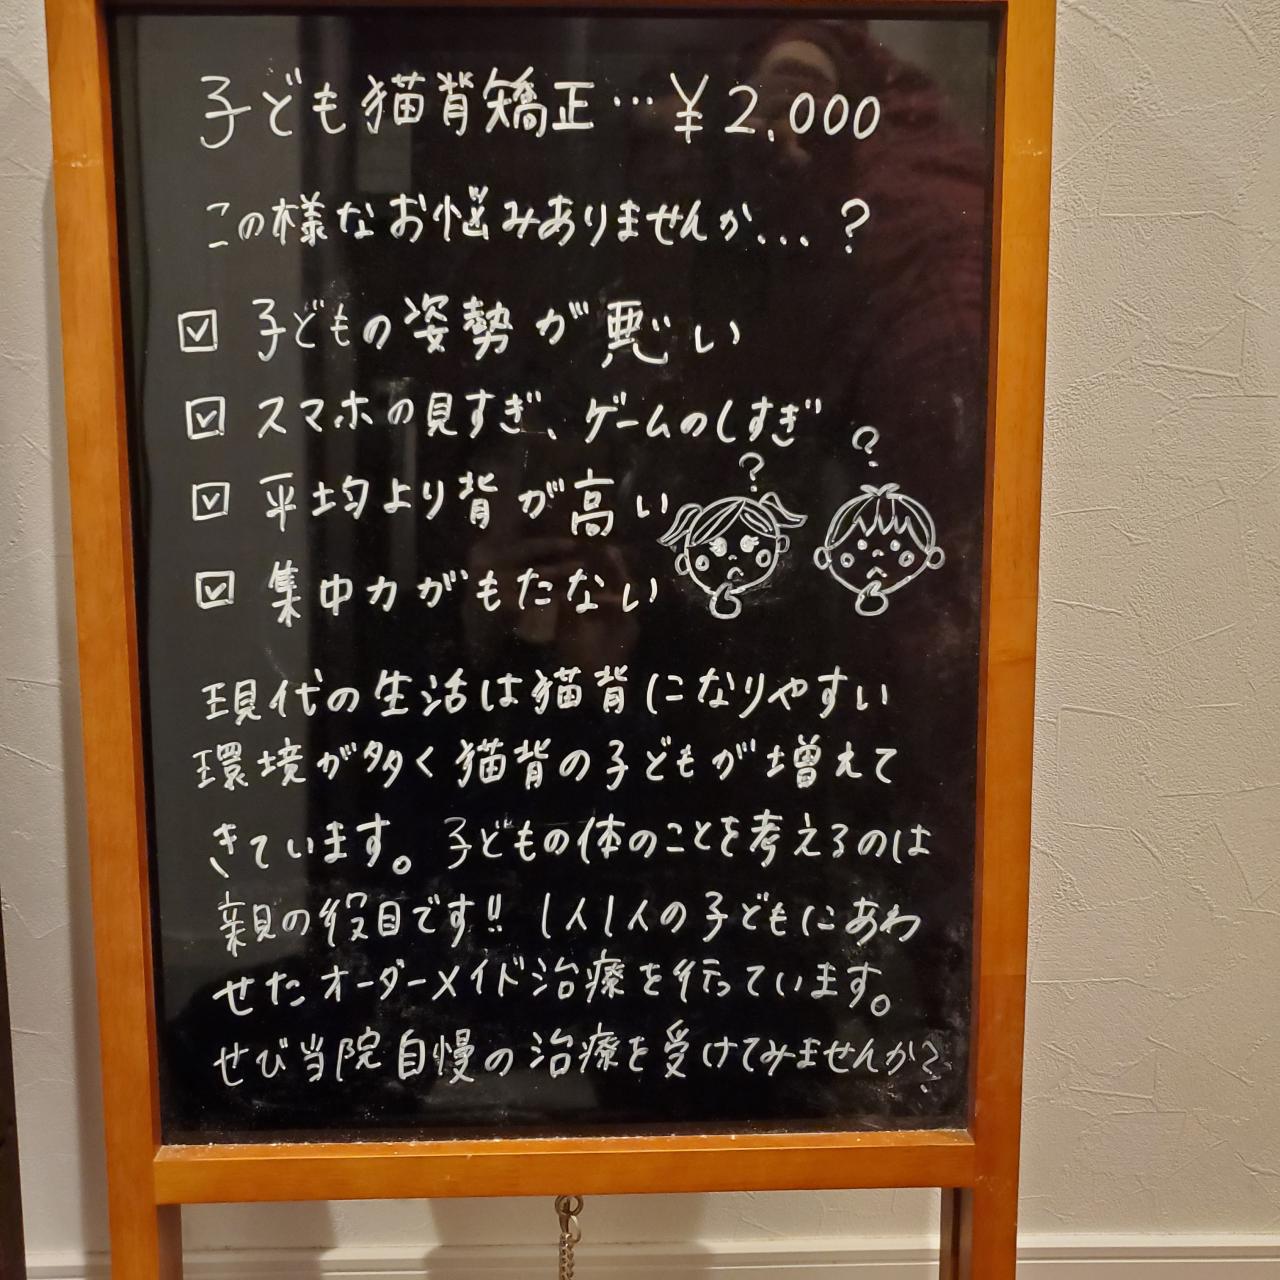 子ども猫背矯正…¥2,000
この様なお悩みありませんか...?
☑ 子どもの姿勢が悪い
☑ スマホの見すぎ、ゲームのしすぎ
☑ 平均より背が高い
☑ 集中力がもたない
? ?
現代の生活は猫背になりやすい
環境が多く猫背の子どもが増えて
きています。子どもの体のことを考えるのは
親の役目です!! 1人1人の子どもにあわ
せたオーダーメイド治療を行っています。
せび当院自慢の治療を受けてみませんか?